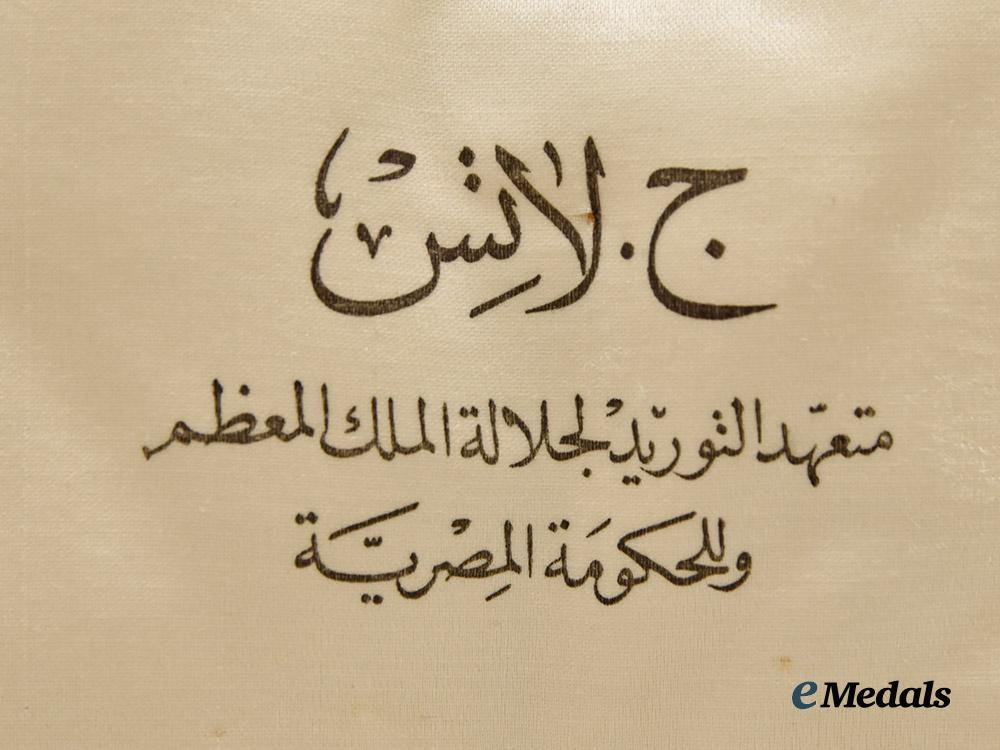 ج. لانِسْ
متعهّد التوريْد لجلالة الملك المعظم
وللحكومَة المِصْريَّة
eMedals